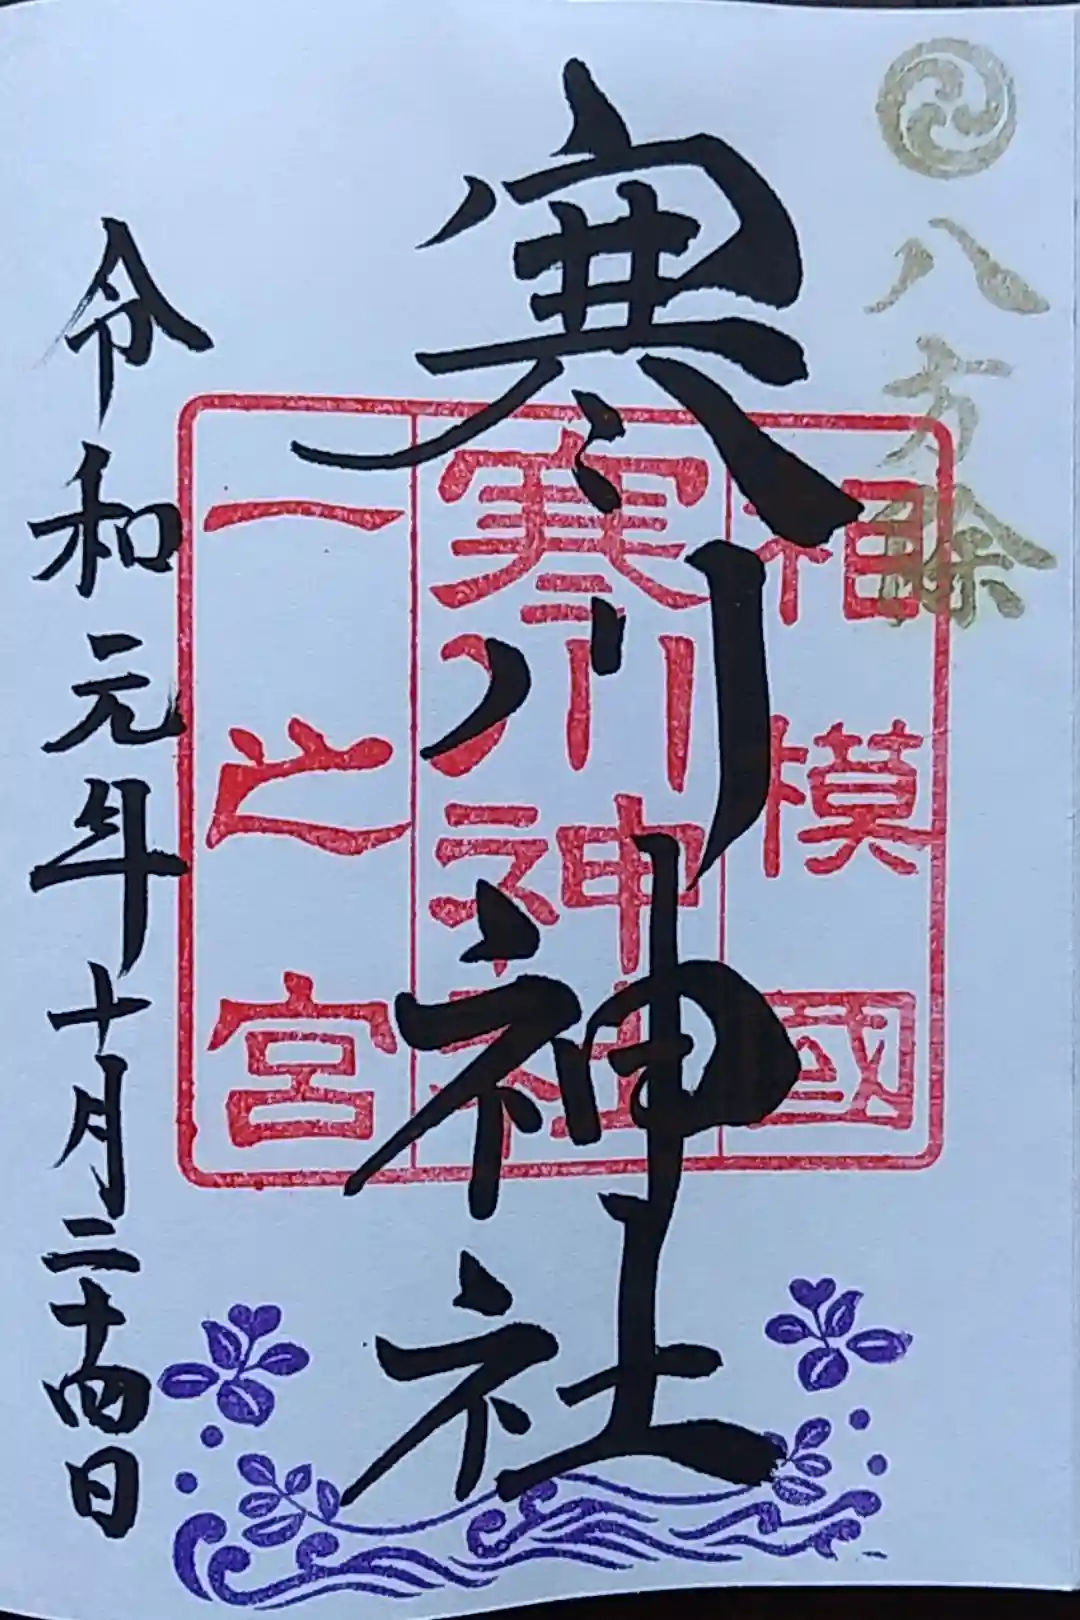 八方除
相模國
寒川神社
一之宮
寒川神社
令和元年十月二十四日